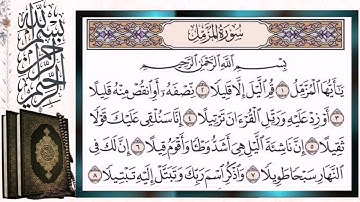 بسم الله الرحمن الرحيم
سُورَةُ الْمُزَّمِّلِ
بِسْمِ اللَّهِ الرَّحْمَٰنِ الرَّحِيمِ
يَا أَيُّهَا الْمُزَّمِّلُ ١ قُمِ اللَّيْلَ إِلَّا قَلِيلًا ٢ نِّصْفَهُ أَوِ انقُصْ مِنْهُ قَلِيلًا
٣ أَوْ زِدْ عَلَيْهِ وَرَتِّلِ الْقُرْءَانَ تَرْتِيلًا ٤ إِنَّا سَنُلْقِي عَلَيْكَ قَوْلًا
ثَقِيلًا ٥ إِنَّ نَاشِئَةَ اللَّيْلِ هِيَ أَشَدُّ وَطْئًا وَأَقْوَمُ قِيلًا ٦ إِنَّ لَكَ فِي
النَّهَارِ سَبْحًا طَوِيلًا ٧ وَاذْكُرِ اسْمَ رَبِّكَ وَتَبَتَّلْ إِلَيْهِ تَبْتِيلًا ٨